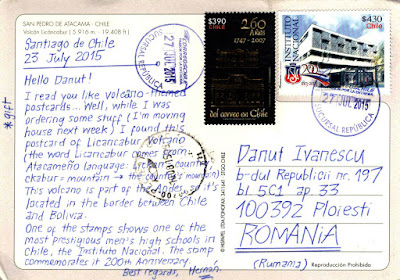 SAN PEDRO DE ATACAMA - CHILE
Volcán Licancabur (5.916 m. - 19.408 ft.)
Santiago de Chile
23 July 2015
Hello Danut!
I read you like volcano-themed
postcards... Well, while I was
ordering some stuff (I'm moving
house next week) I found this
postcard of Licancabur Volcano
(the word Licancabur comes from
Atacameño language: lican = country
ckabur = mountain → the country's mountain)
This volcano is part of the Andes, so it's
located in the border between Chile
and Bolivia.
One of the stamps shows one of the
most prestigious men's high schools in
Chile, the Instituto Nacional. The stamp
commemorates it 200th Anniversary.
Best regards, Hernán.
*gift
SUCURSAL REPÚBLICA
27 JUL 2015
$390
CHILE
260
Años
1747-2007
del correo en Chile
INSTITUTO
NACIONAL
$430
Chile
27 JUL 2015
SUCURSAL REPÚBLICA
Danut Ivanescu
b-dul Republicii nr. 197
bl. 5C1 ap. 33
100392 Ploiesti
ROMÂNIA
(Rumania)
Reproducción Prohibida